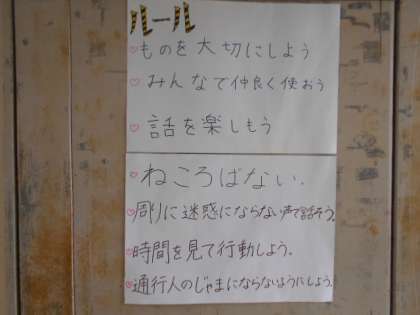 ルール
ものを大切にしよう
みんなで仲良く使おう
話を楽しもう
ねころばない.
周りに迷惑にならない声で話そう.
時間を見て行動しよう.
通行人のじゃまにならないようにしよう.